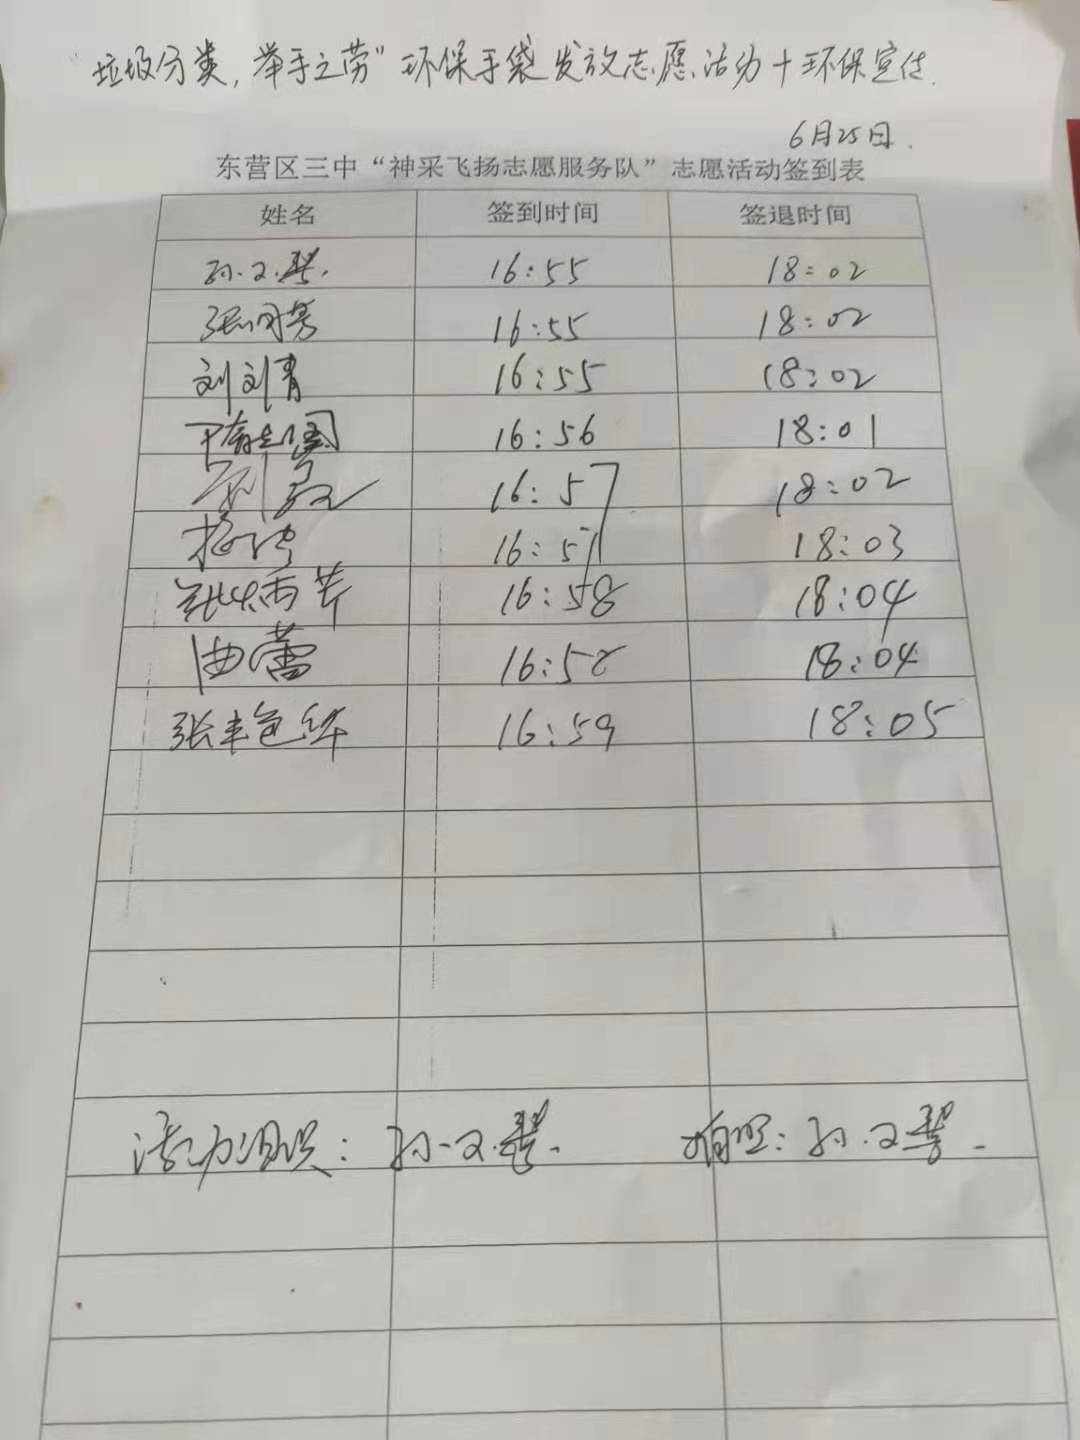 “垃圾分类，举手之劳”环保手袋发放志愿活动+环保宣传.
6月25日.
东营区三中“神采飞扬志愿服务队”志愿活动签到表
姓名 签到时间 签退时间
孙文 16:55 18:02
张 16:55 18:02
刘刘青 16:55 18:02
16:56 18:01
16:57 18:02
16:57 18:03
16:58 18:04
曲蕾 16:58 18:04
张丰色华 16:59 18:05
活动组织：孙文 拍照：孙文